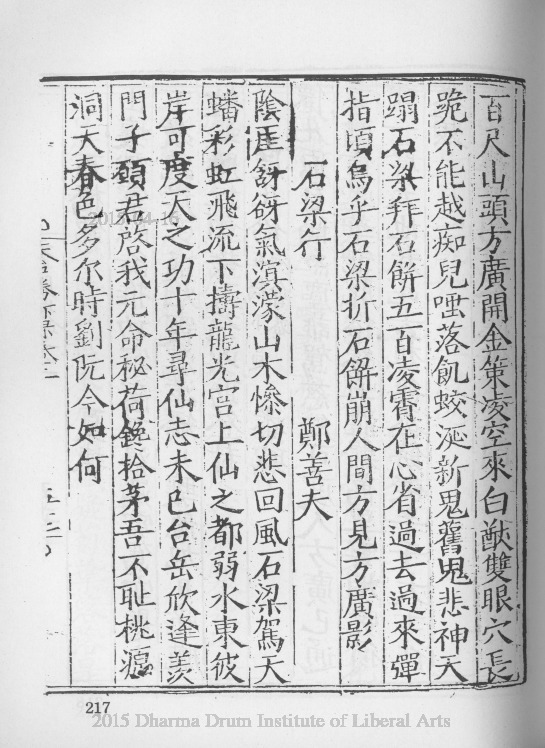 百尺山頭方廣開金策凌空來白猷雙眼穴長
跪不能越痴兒噬落飢蛟涎新鬼舊鬼悲神天
蹋石梁拜石餅五百凌霄在心省過去過來彈
指頃烏乎石梁折石餅崩人間方見方廣影
石梁行 鄭善夫
陰崖谺谺氣溟濛山木慘切悲回風石梁駕天
蟠彩虹飛流下擣龍光宮上仙之都弱水東彼
岸可度天之功十年尋仙志未已台岳欣逢羨
門子願君啓我元命秘荷鋔拾茅吾不恥桃源
洞天春色多尔時劉阮今如何
2015.04.16
217
2015 Dharma Drum Institute of Liberal Arts